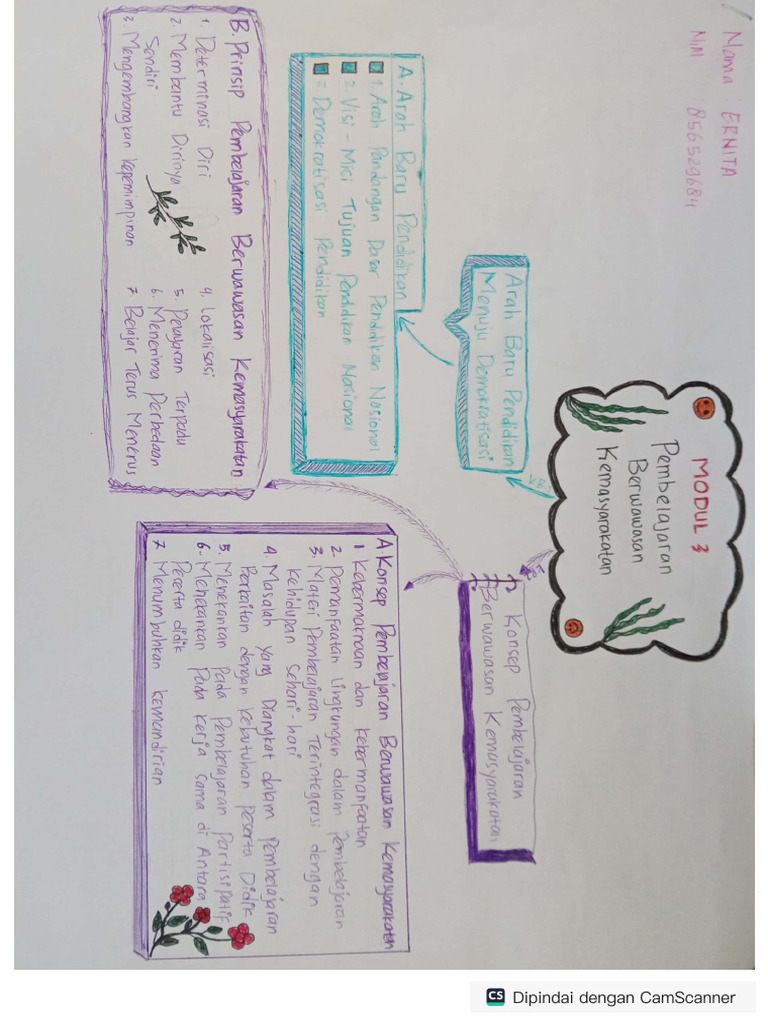 Nama : ERNITA
NIM : 856529684
MODUL 3
Pembelajaran
Berwawasan
Kemasyarakatan
Arah Baru Pendidikan
Menuju Demokratisasi
A. Arah Baru Pendidikan
1. Arah Pandangan Dasar Pendidikan Nasional
2. Visi - Misi Tujuan Pendidikan Nasional
3. Demokratisasi Pendidikan
Konsep Pembelajaran
Berwawasan Kemasyarakatan
A Konsep Pembelajaran Berwawasan Kemasyarakatan
1 Kebermaknaan dan Kebermanfaatan
2. Pemanfaatan Lingkungan dalam Pembelajaran
3. Materi Pembelajaran Terintegrasi dengan
kehidupan Sehari-hari
4. Masalah yang Diangkat dalam Pembelajaran
Berkaitan dengan Kebutuhan Peserta Didik
5. Menekankan Pada Pembelajaran Partisipatif
6. Menekankan Pada Kerja Sama di Antara
Peserta didik
7 Menumbuhkan kemandirian
B. Prinsip Pembelajaran Berwawasan Kemasyarakatan
1. Determinasi Diri
2. Membantu Dirinya
Sendiri
3. Mengembangkan Kepemimpinan
4. Lokalisasi
5. Pelajaran Terpadu
6. Menerima Perbedaan
7. Belajar Terus Menerus
CS Dipindai dengan CamScanner